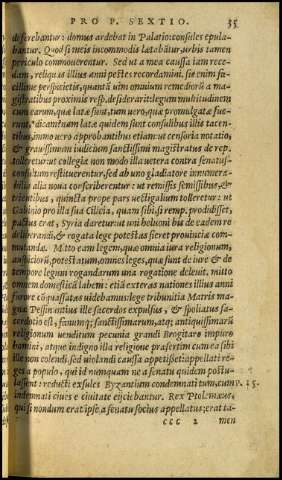 PRO P. SEXTIO. 35
deferebantur: domus ardebat in Palatio: consules epula-
bantur. Quod si meis incommodis lætabãtur, urbis tamen
periculo commouerentur. Sed ut a mea caussa iam rece-
dam, reliquas illius anni pestes recordamini. sic enim fa-
cillime perspicietis, quantã uim omnium remediorũ a ma-
gistratibus proximis resp. desiderarit: legum multitudinem
cum earum, quæ latæ sunt, tum uero, quæ promulgatæ fue-
runt. nã latæ quidem sunt consulibus illis tacen-
immo uero approbantibus etiam: ut censoria notatio,
& grauissimum iudicium sanctissimi magistratus de rep.
tolleretur: ut collegia non modo illa uetera contra senatus-
consultum restituerentur, sed ab uno gladiatore innumera-
bilia alia noua conscriberentur: ut remissis semissibus, &
trientibus, quinta prope pars uectigalium tolleretur: ut
Gabinio pro illa sua Cilicia, quam sibi, si remp. prodidisset,
pactus erat, Syria daretur: ut uni helluoni bis de eadem re
liberandi, & rogata lege potestas fieret prouinciæ com-
mutandæ. Mitto eam legem, quæ omnia iura religionum,
auspiciorũ, potestatum, omnes leges, quæ sunt de iure & de
tempore legum rogandarum una rogatione deleuit. mitto
omnem domesticã labem: etiã exteras nationes illius anni
furore cõquassatas uidebamus: lege tribunitia Matris ma-
gnæ Pessinuntius ille sacerdos expulsus, & spoliatus sa-
cerdotio est, fanumq; sanctissimarum, atq; antiquissimarũ
religionum uenditum pecunia grandi Brogitaro impuro
homini, atque indigno illa religione præsertim cum ea sibi
ille non colendi, sed uiolandi caussa appetisset: appellati re-
ges a populo, qui id numquam ne a senatu quidem postu-
lassent: reducti exsules Byzantium condemnati tum, cum 25.
indemnati ciues e ciuitate eijciebantur. Rex Ptolemæus,
qui si nondum erat ipse a senatu socius appellatus; erat ta-
ccc 2 men